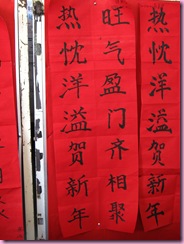 热忱洋溢贺新年
旺气盈门齐相聚
热忱洋溢贺新年